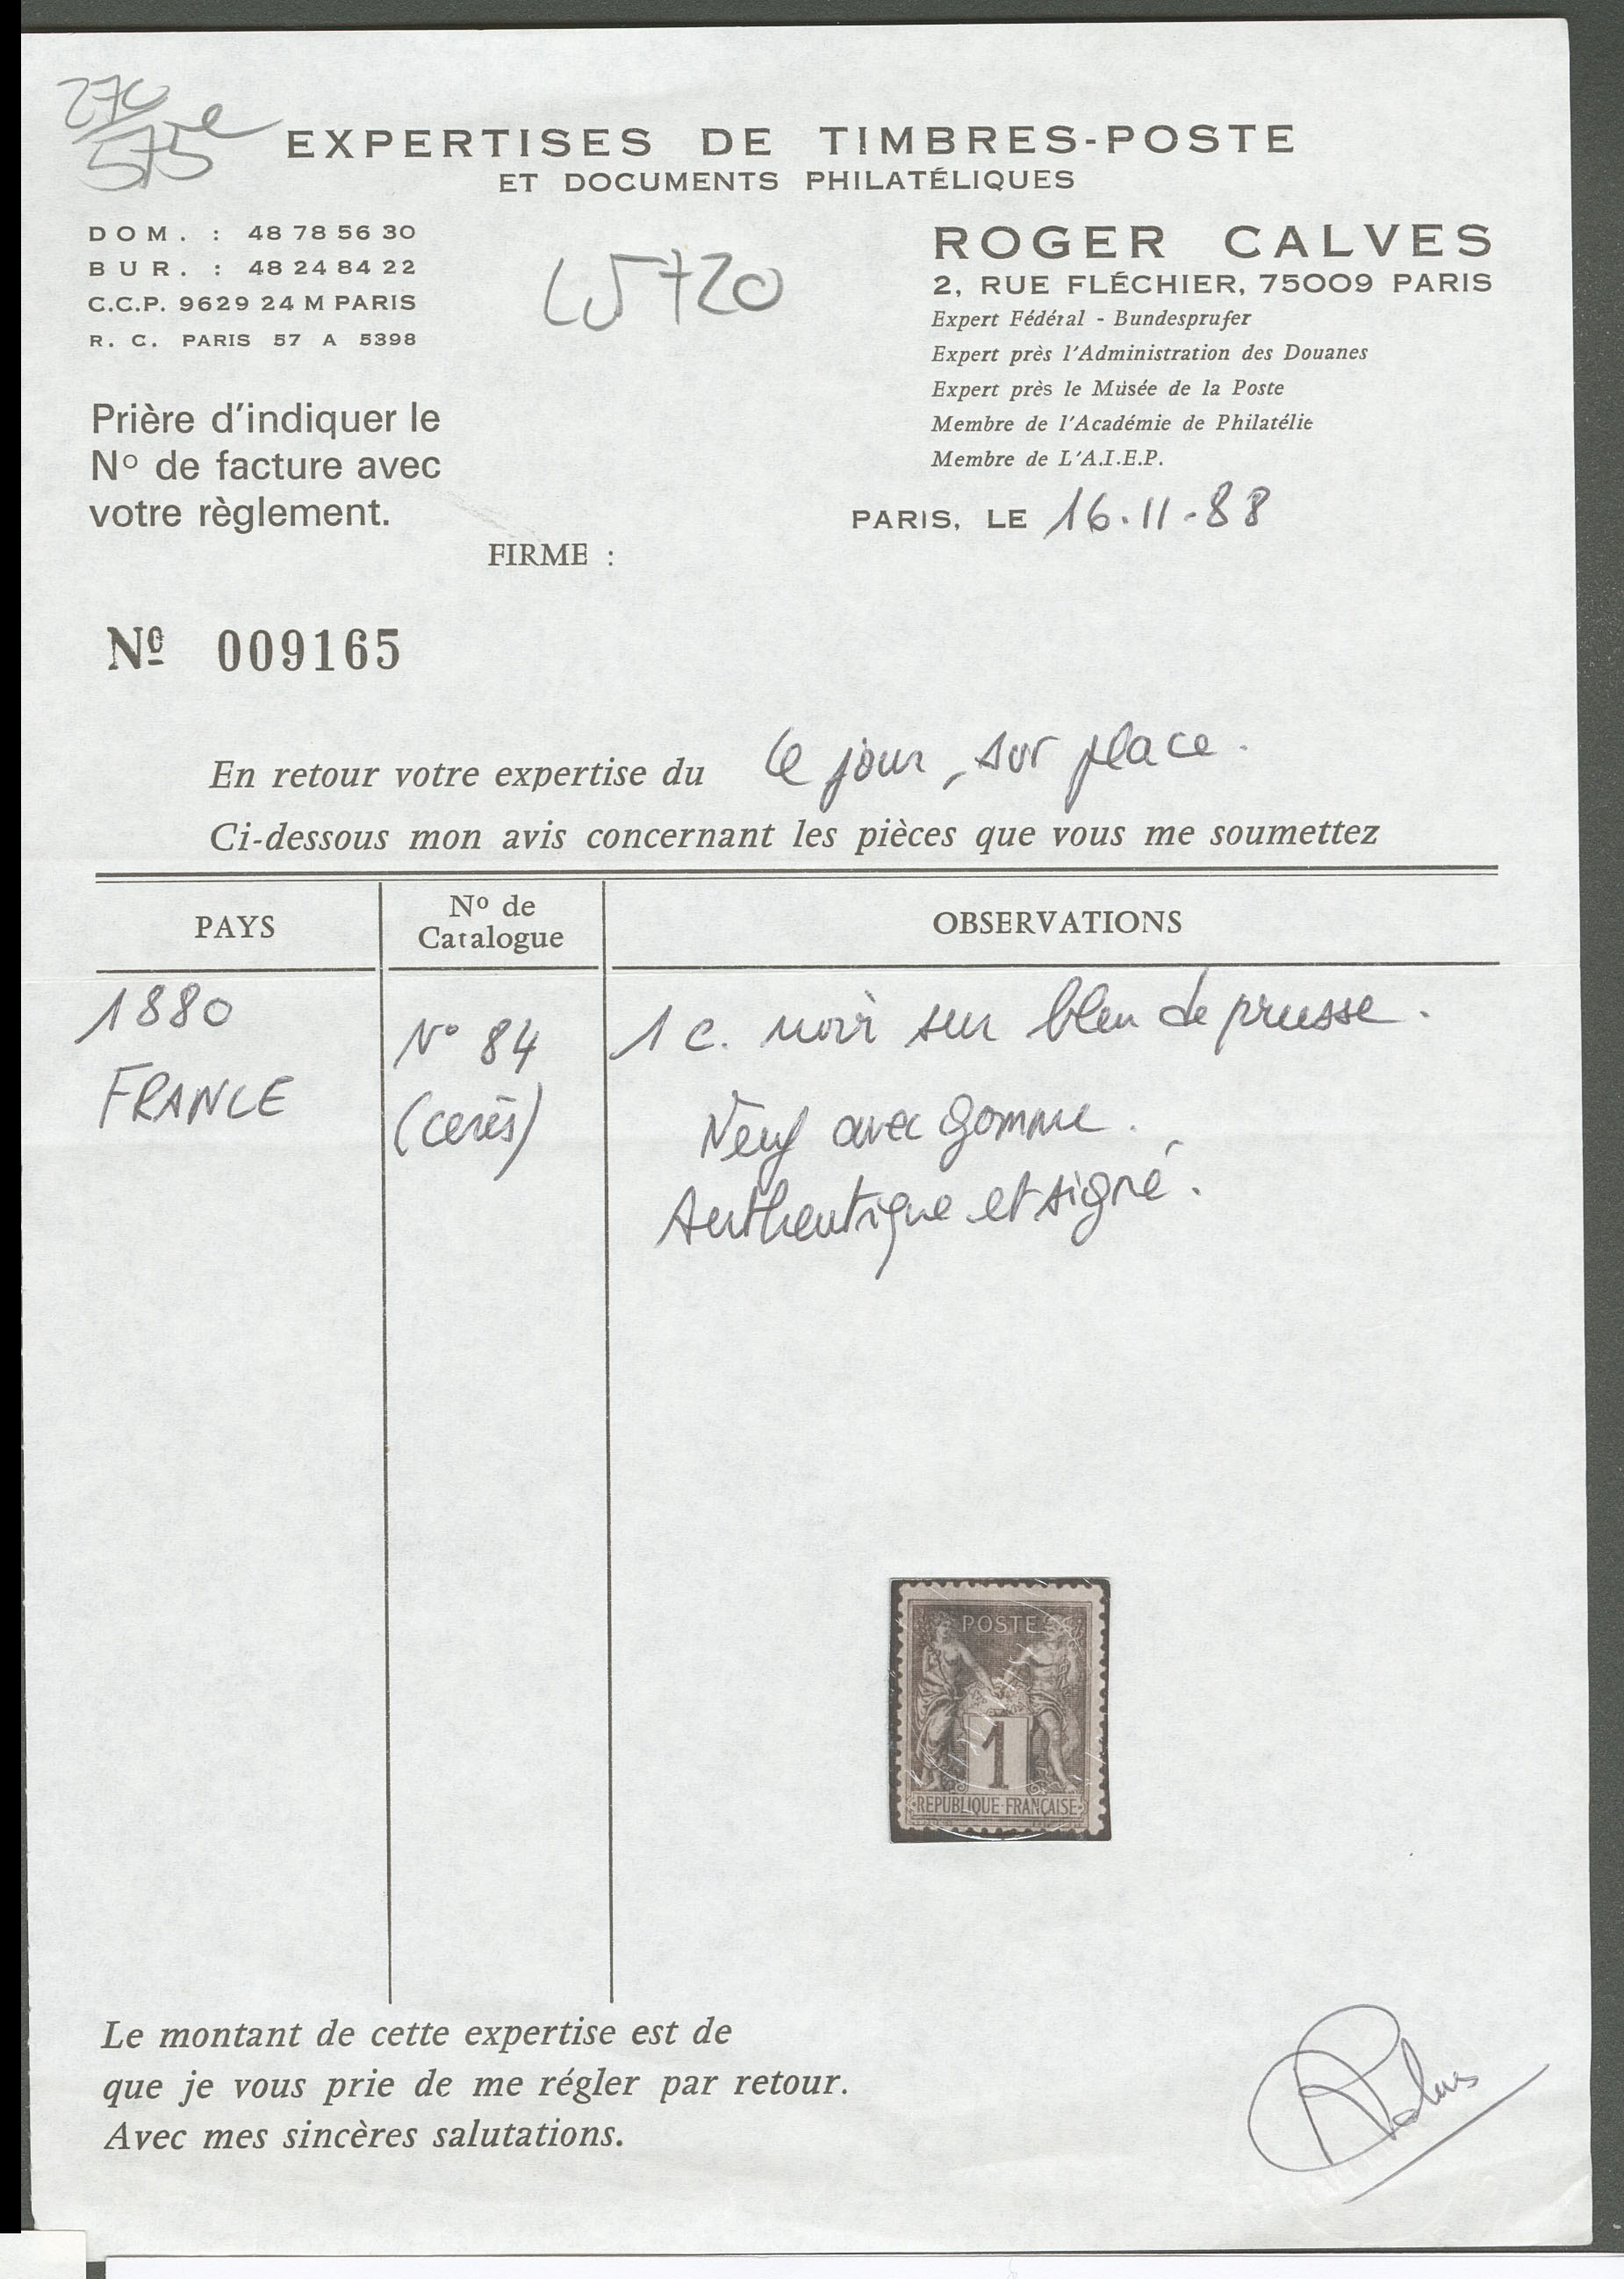 270
575e
EXPERTISES DE TIMBRES-POSTE
ET DOCUMENTS PHILATÉLIQUES
DOM. : 48 78 56 30
BUR. : 48 24 84 22
C.C.P. 9629 24 M PARIS
R. C. PARIS 57 A 5398
720
ROGER CALVES
2, RUE FLÉCHIER, 75009 PARIS
Expert Fédéral - Bundesprufer
Expert près l'Administration des Douanes
Expert près le Musée de la Poste
Membre de l'Académie de Philatélie
Membre de L'A.I.E.P.
Prière d'indiquer le
Nº de facture avec
votre règlement.
PARIS, LE 16.11.88
FIRME :
Nº 009165
En retour votre expertise du ce jour, sur place.
Ci-dessous mon avis concernant les pièces que vous me soumettez
PAYS
Nº de
Catalogue
OBSERVATIONS
1880
FRANCE
N° 84
(cerès)
1 c. noir sur bleu de prusse.
Neuf avec gomme.
Authentique et signé.
POSTE
1
REPUBLIQUE FRANÇAISE
Le montant de cette expertise est de
que je vous prie de me régler par retour.
Avec mes sincères salutations.